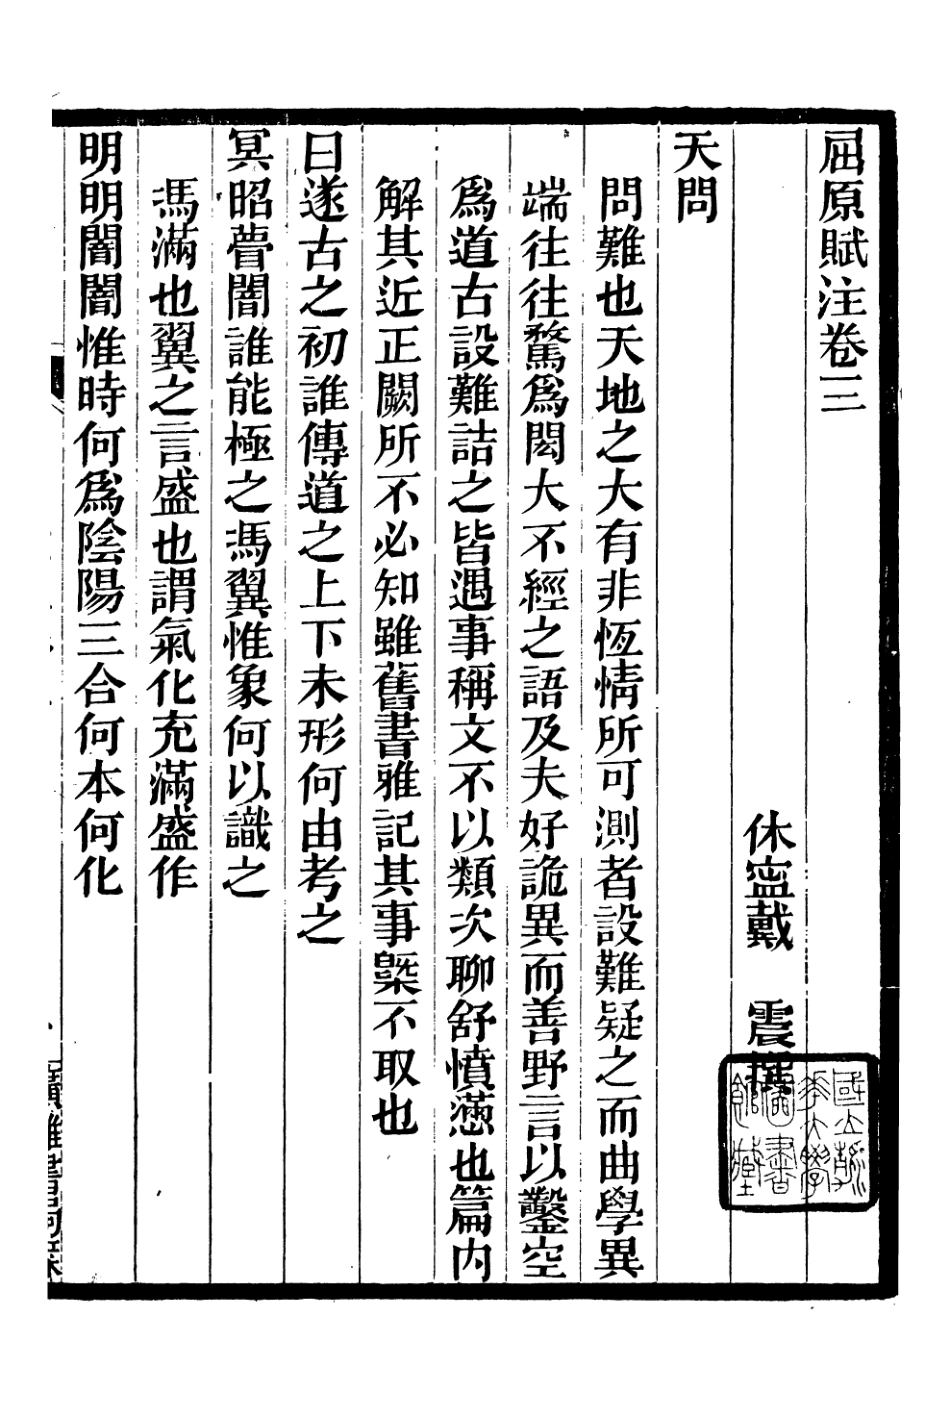 屈原賦注卷三
休寧戴　震撰
天問
問難也天地之大有非恆情所可測者設難疑之而曲學異
端往往騖爲閎大不經之語及夫好詭異而善野言以鑿空
爲道古設難詰之皆遇事稱文不以類次聊舒憤懣也篇內
解其近正闕所不必知雖舊書雅記其事槩不取也
曰遂古之初誰傳道之上下未形何由考之
冥昭瞢闇誰能極之馮翼惟象何以識之
馮滿也翼之言盛也謂氣化充滿盛作
明明闇闇惟時何爲陰陽三合何本何化
國立浙
江大學
圖書
館藏